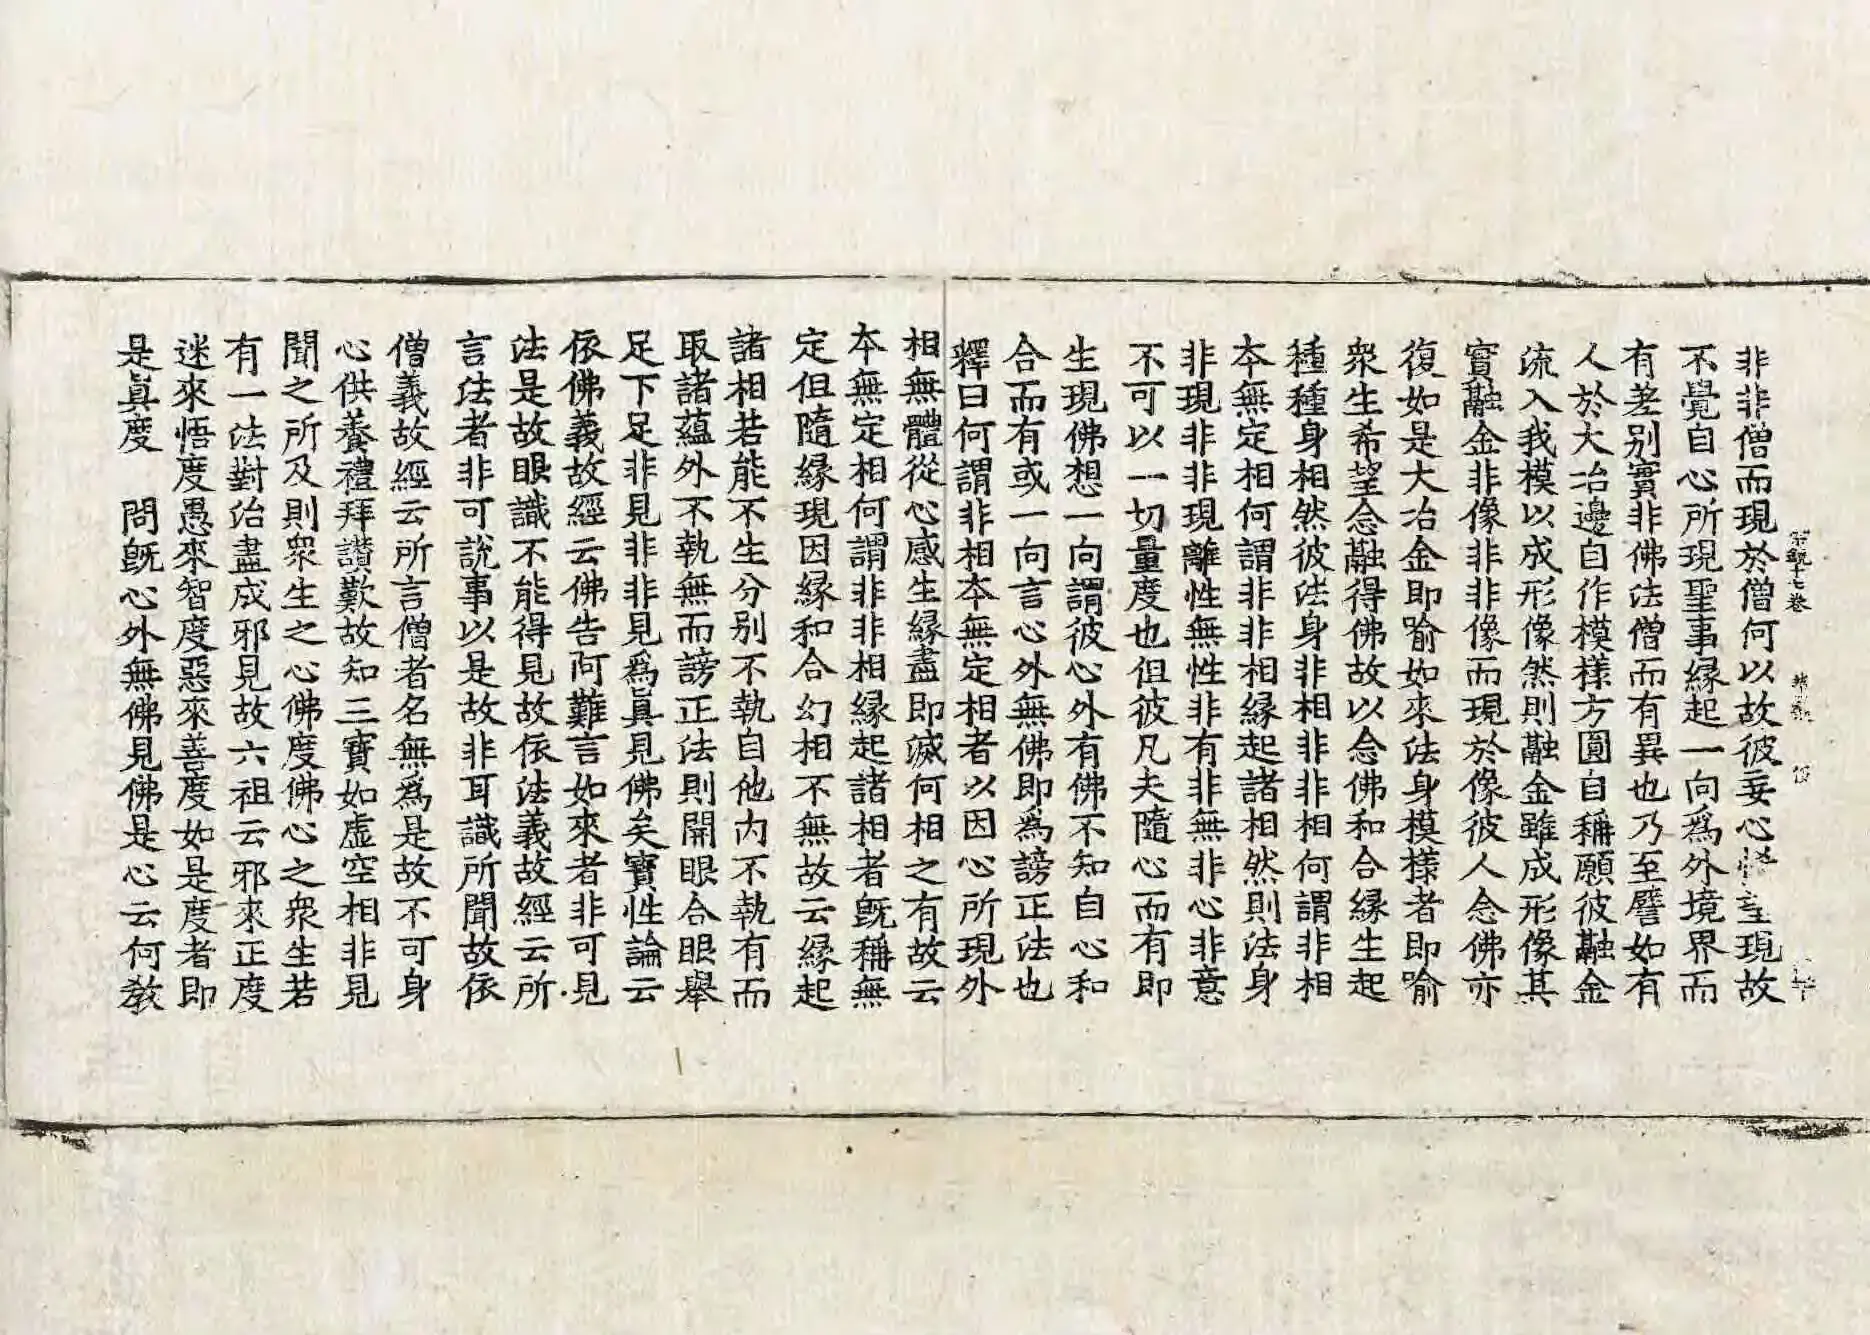 非非僧而現於僧何以故彼妄心
現故
不覺自心所現聖事縁起一向爲外境界而
有差别實非佛法僧而有異也乃至譬如有
人於大冶邊自作模樣方圓自稱願彼融金
流入我模以成形像然則融金雖成形像其
實融金非像非非像而現於像彼人念佛亦
復如是大冶金即喻如來法身模樣者即喻
衆生希望念融得佛故以念佛和合縁生起
種種身相然彼法身非相非非相何謂非相
本無定相何謂非非相縁起諸相然則法身
非現非非現離性無性非有非無非心非意
不可以一切量度也但彼凡夫隨心而有即
生現佛想一向謂彼心外有佛不知自心和
合而有或一向言心外無佛即爲謗正法也
釋曰何謂非相本無定相者以因心所現外
相無體從心感生縁盡即滅何相之有故云
本無定相何謂非非相縁起諸相者既稱無
定但隨縁現因縁和合幻相不無故云縁起
諸相若能不生分别不執自他内不執有而
取諸蘊外不執無而謗正法則開眼合眼舉
足下足非見非非見爲眞見佛矣寶性論云
依佛義故經云佛告阿難言如來者非可見
法是故眼識不能得見故依法義故經云所
言法者非可説事以是故非耳識所聞故依
僧義故經云所言僧者名無爲是故不可身
心供養禮拜讚歎故知三寶如虚空相非見
聞之所及則衆生之心佛度佛心之衆生若
有一法對治盡成邪見故六祖云邪來正度
迷來悟度愚來智度惡來善度如是度者即
是眞度　問既心外無佛見佛是心云何教